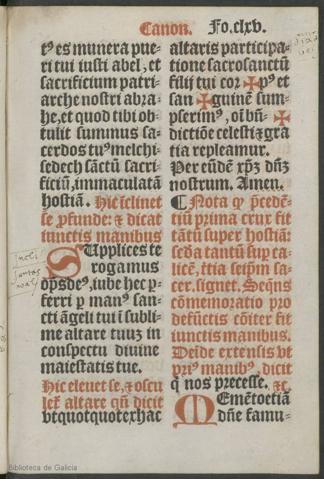 Canon. Fo.clxv.
tꝰ es munera pue⸗
ri tui iusti abel, et
sacrificium patri⸗
arche nostri abra⸗
he, et quod tibi ob⸗
tulit summus sa⸗
cerdos tuꝰ melchi⸗
sedech sãctũ sacri⸗
ficiũ, immaculatã
hostiã. Hic ĩclinet
se ꝓfunde: & dicat
iunctis manibus
SUpplices te
rogamus
oȳpsdeꝰ, iube hec ꝑ⸗
ferri ꝑ manꝰ san⸗
cti ãgeli tui ĩ subli⸗
me altare tuuȝ in
conspectu diuine
maiestatis tue.
Hic eleuet se, & oscu
leť altare qũ dicit
vt quotquot ex hac
altaris participa⸗
tione sacrosanctũ
filij tui cor ✠ pꝰ et
san ✠ guinẽ sum⸗
pserimꝰ, oĩ bñ ✠
dictiõe celesti & gra
tia repleamur.
Per eũdẽ xp̃ȝ dñȝ
nostrum. Amen.
¶ Nota ꝙ p̃cedẽ⸗
tiũ prima crux fit
tãtũ super hostiã:
seđa tantũ suꝑ ca⸗
licẽ, ťtia seip̃m sa⸗
cer. signet. Seq̃ns
cõmemoratio pro
defũctis cõiter fit
iunctis manibus.
Deĩde extensis vt
priꝰ manibꝰ, dicit
q̃ nos precesse. &c
MEmẽto etiã
dñe famu⸗
Biblioteca de Galicia